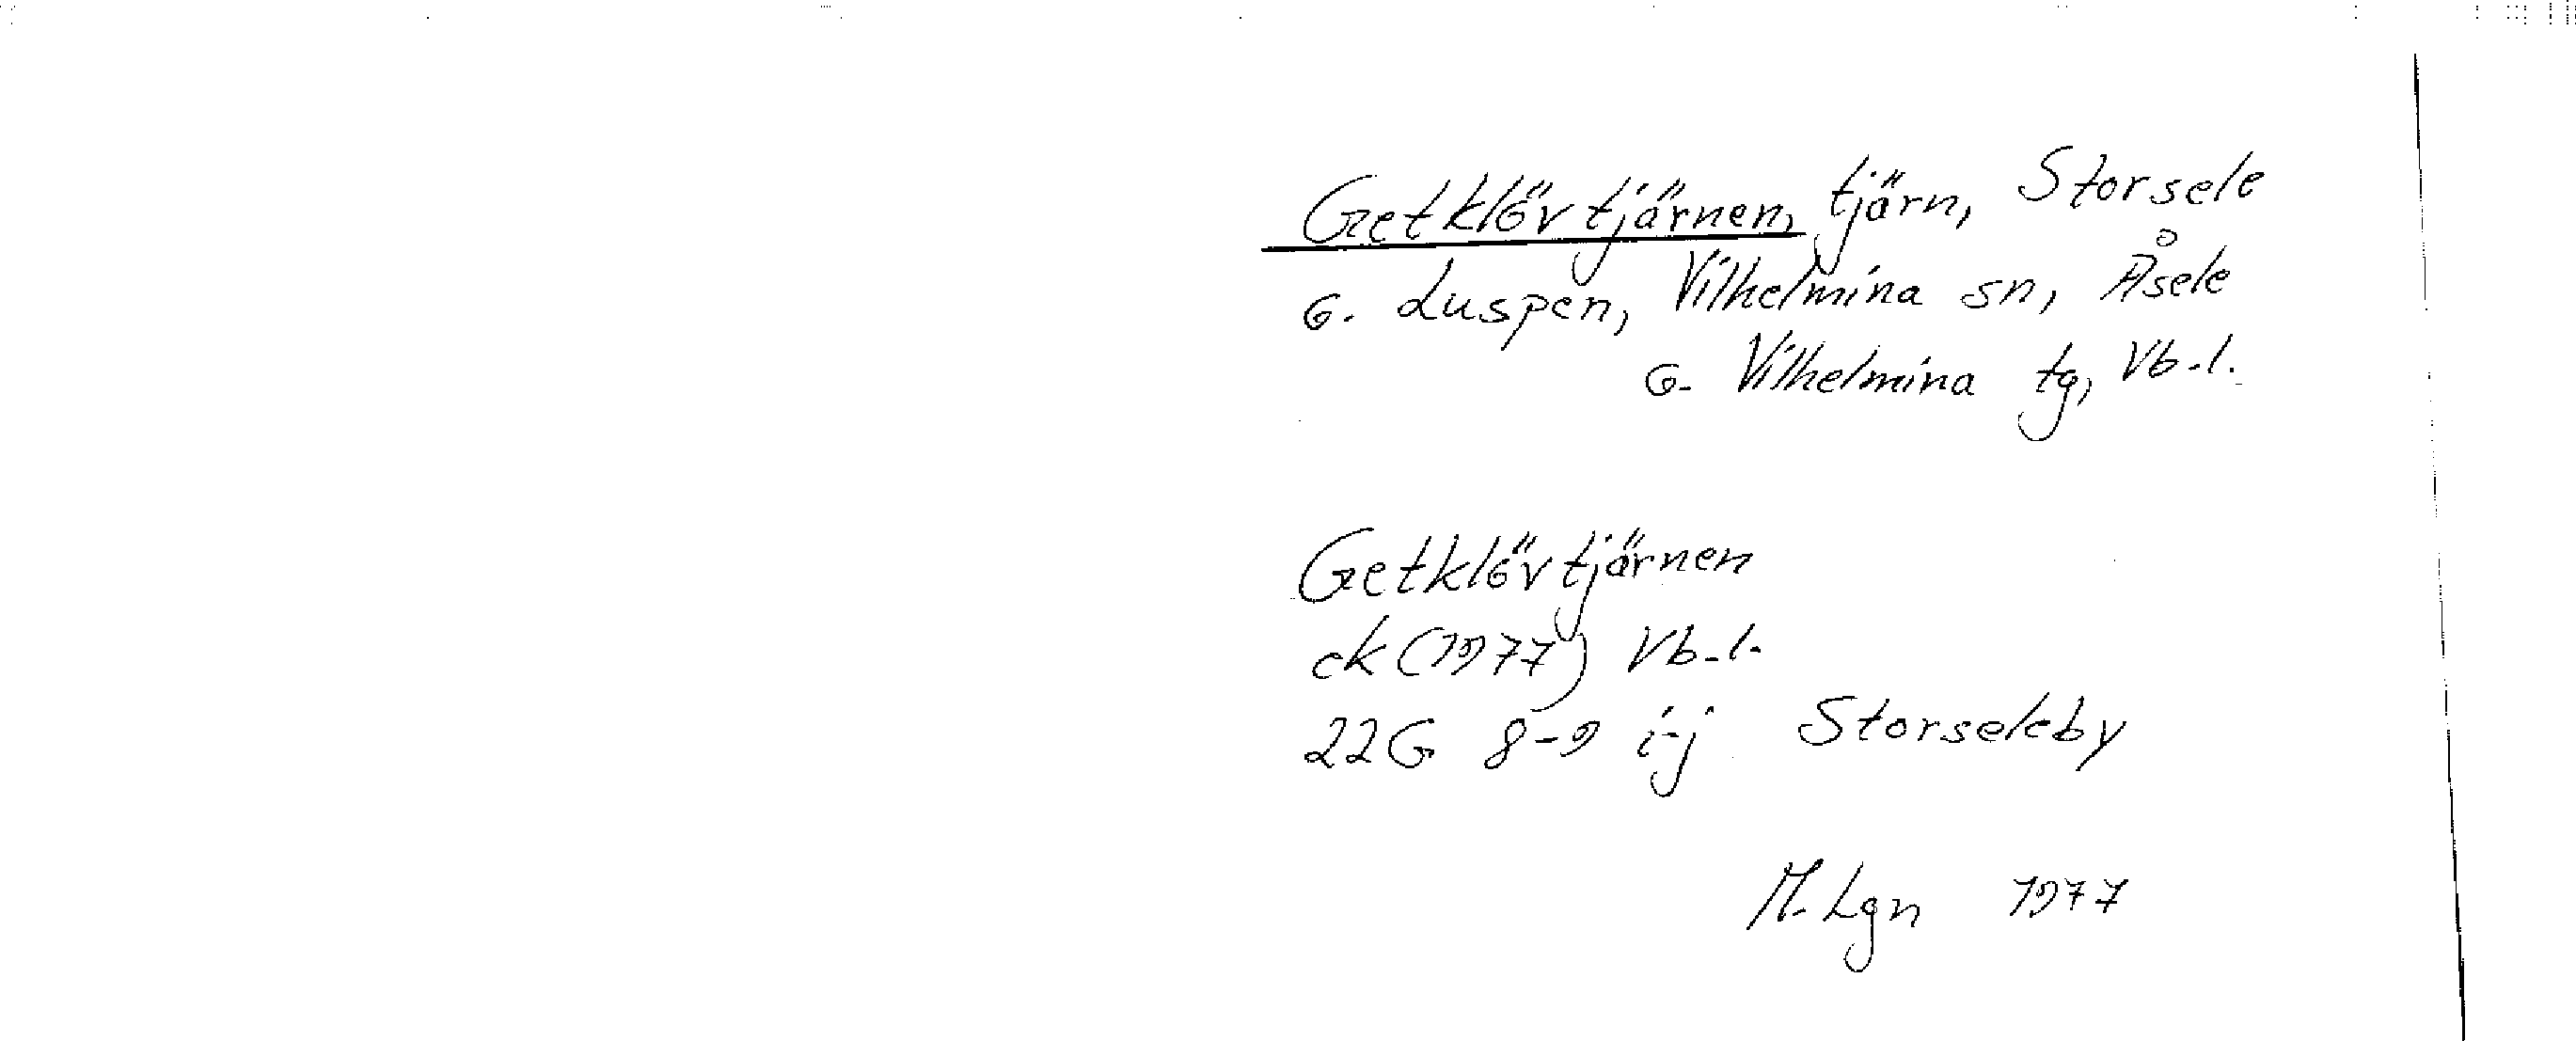 Getklövtjärnen, tjärn, Storsele
G. Luspen, Vilhelmina sn, Åsele
G. Vilhelmina tg, Vb.l.
Getklövtjärnen
ek (1977) Vb.l.
22G 8-9 i-j Storseleby
M. Lgn 1977